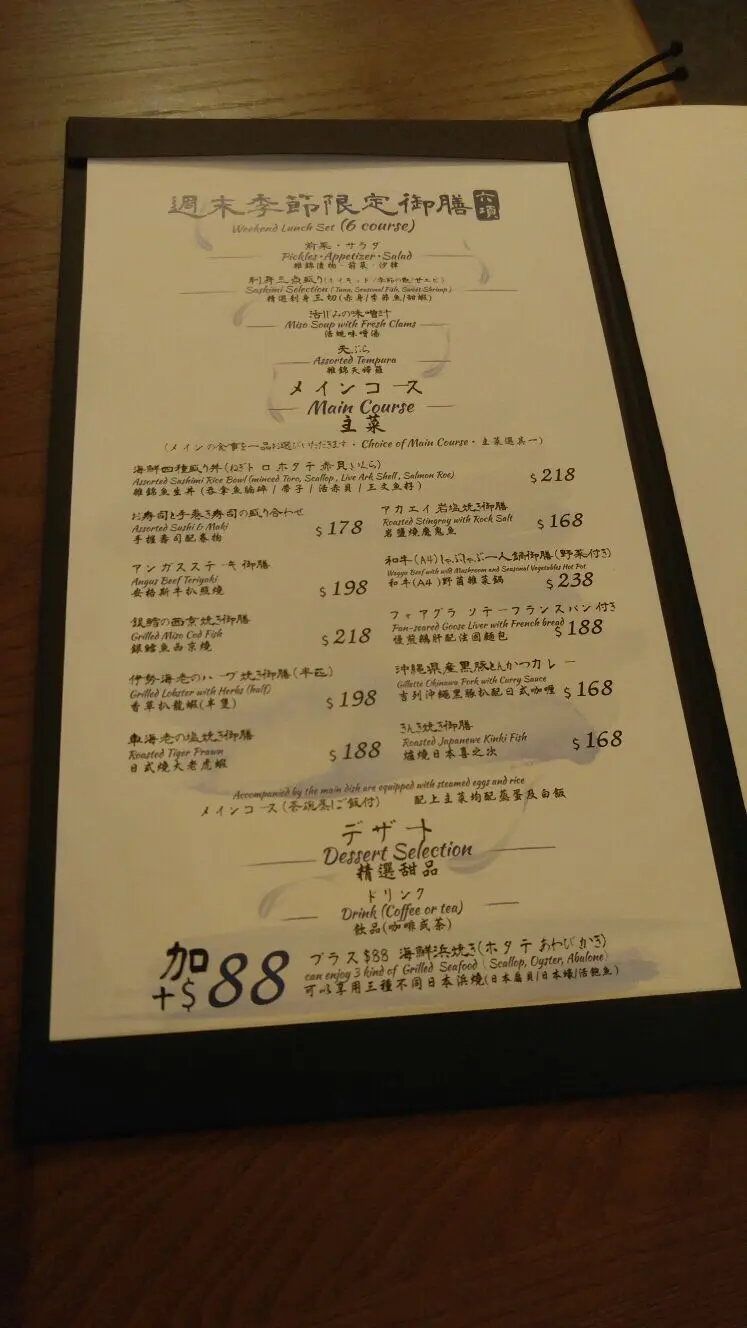 週末季節限定御膳 六項
Weekend Lunch Set (6 course)
前菜・サラダ
Pickles・Appetizer・Salad
雜錦漬物・前菜・沙律
刺身三点盛り
Sashimi Selection (Tuna, Seasonal Fish, Sweet Shrimp)
精選刺身三切(赤身/季節魚/甜蝦)
活けみの味噌汁
Miso Soup with Fresh Clams
活蜆味噌湯
天ぷら
Assorted Tempura
雜錦天婦羅
メインコース
Main Course
主菜
(メインの食事を一品お選びいただきます・Choice of Main Course・主菜選其一)
海鮮四種盛り丼(ねぎトロ ホタテ 赤貝 いくら)
Assorted Sashimi Rice Bowl (minced Toro, Scallop, Live Ark Shell, Salmon Roe)
雜錦魚生丼(吞拿魚蓉/帶子/活赤貝/三文魚籽)
$218
お寿司と手巻き寿司の盛り合わせ
Assorted Sushi & Maki
手握壽司配卷物
$178
アカエイ岩塩焼き御膳
Roasted Stingray with Rock Salt
岩鹽燒魔鬼魚
$168
アンガスステーキ御膳
Angus Beef Teriyaki
安格斯牛扒照燒
$198
和牛(A4)しゃぶしゃぶ一人鍋御膳(野菜付き)
Wagyu Beef with wild Mushroom and Seasonal Vegetables Hot Pot
和牛(A4)野菌雜菜鍋
$238
銀鱈の西京焼き御膳
Grilled Miso Cod Fish
銀鱈魚西京燒
$218
フォアグラ ソテーフランスパン付き
Pan-seared Goose Liver with French bread
慢煎鵝肝配法國麵包
$188
伊勢海老のハーブ焼き御膳(半匹)
Grilled Lobster with Herbs (half)
香草扒龍蝦(半隻)
$198
沖縄県産黒豚とんかつカレー
Gillette Okinawa Pork with Curry Sauce
吉列沖繩黑豚扒配日式咖喱
$168
車海老の塩焼き御膳
Roasted Tiger Prawn
日式燒大老虎蝦
$188
きんき焼き御膳
Roasted Japanewe Kinki Fish
爐燒日本喜之次
$168
Accompanied by the main dish are equipped with steamed eggs and rice
メインコース(茶碗蒸しご飯付) 配上主菜均配蒸蛋及白飯
デザート
Dessert Selection
精選甜品
ドリンク
Drink (Coffee or tea)
飲品(咖啡或茶)
加
+$88
プラス$88 海鮮浜焼き(ホタテ あわび かき)
can enjoy 3 kind of Grilled Seafood (Scallop, Oyster, Abalone)
可以享用三種不同日本浜燒(日本扇貝/日本蠔/活鮑魚)